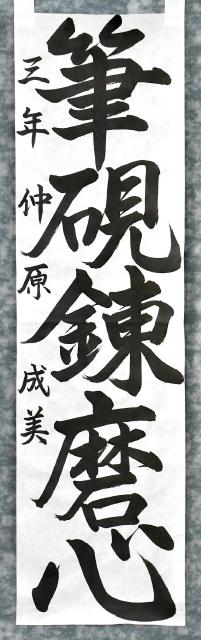 筆硯錬磨心
三年 仲原 成美